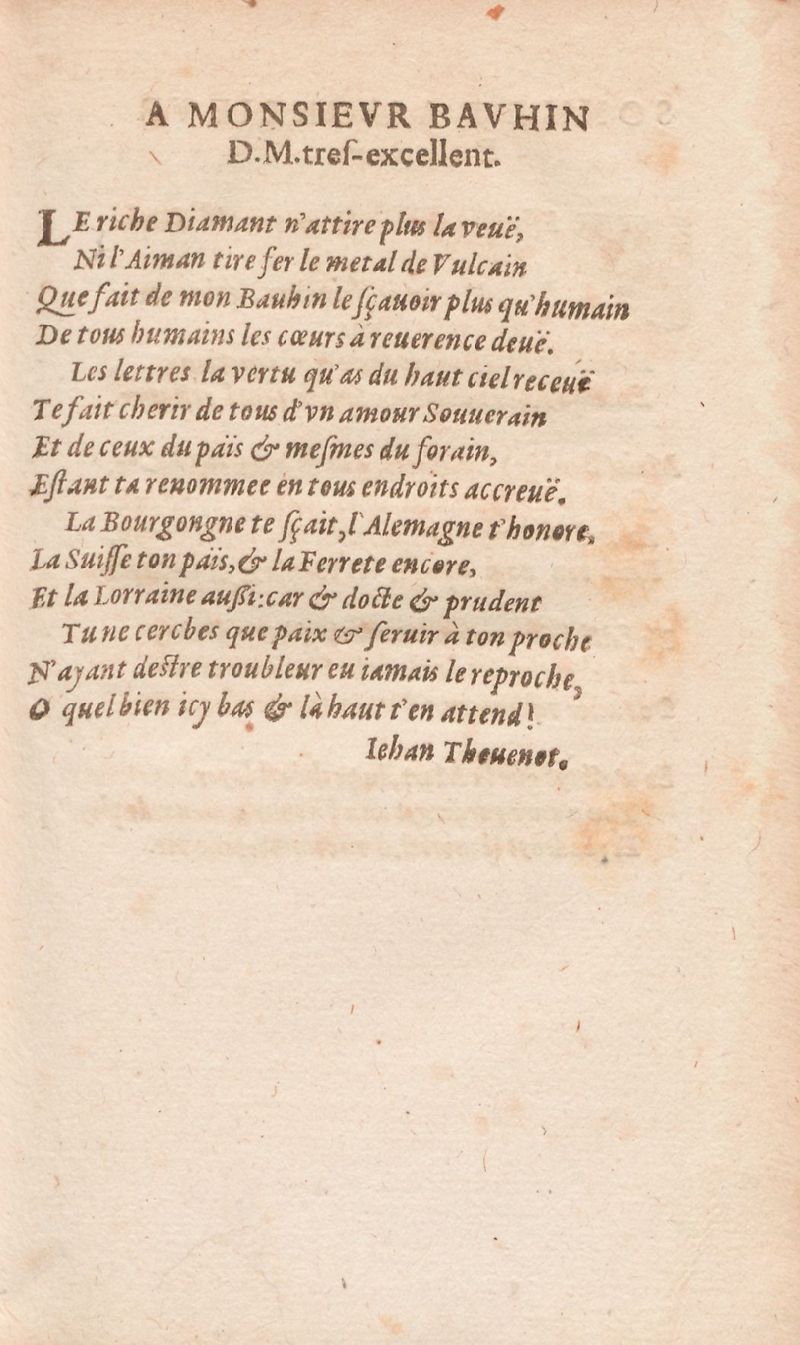 A MONSIEVR BAVHIN
D.M.treſ-excellent.
LE riche Diamant n'attire plus la veuë,
Ni l'Aiman tire fer le metal de Vulcain
Que fait de mon Bauhin le ſçauoir plus qu'humain
De tous humains les cœurs à reuerence deuë.
Les lettres la vertu qu'as du haut ciel receuë
Te fait cherir de tous d'vn amour Souuerain
Et de ceux du païs & meſmes du forain,
Eſtant ta renommee en tous endroits accreuë.
La Bourgongne te ſçait, l'Alemagne t'honore,
La Suiſſe ton païs, & la Ferrete encore,
Et la Lorraine auſſi: car & docte & prudent
Tu ne cerches que paix & ſeruir à ton proche
N'ayant deſtre troubleur eu iamais le reproche,
O quel bien icy bas & là haut t'en attend!
Iehan Theuenot.